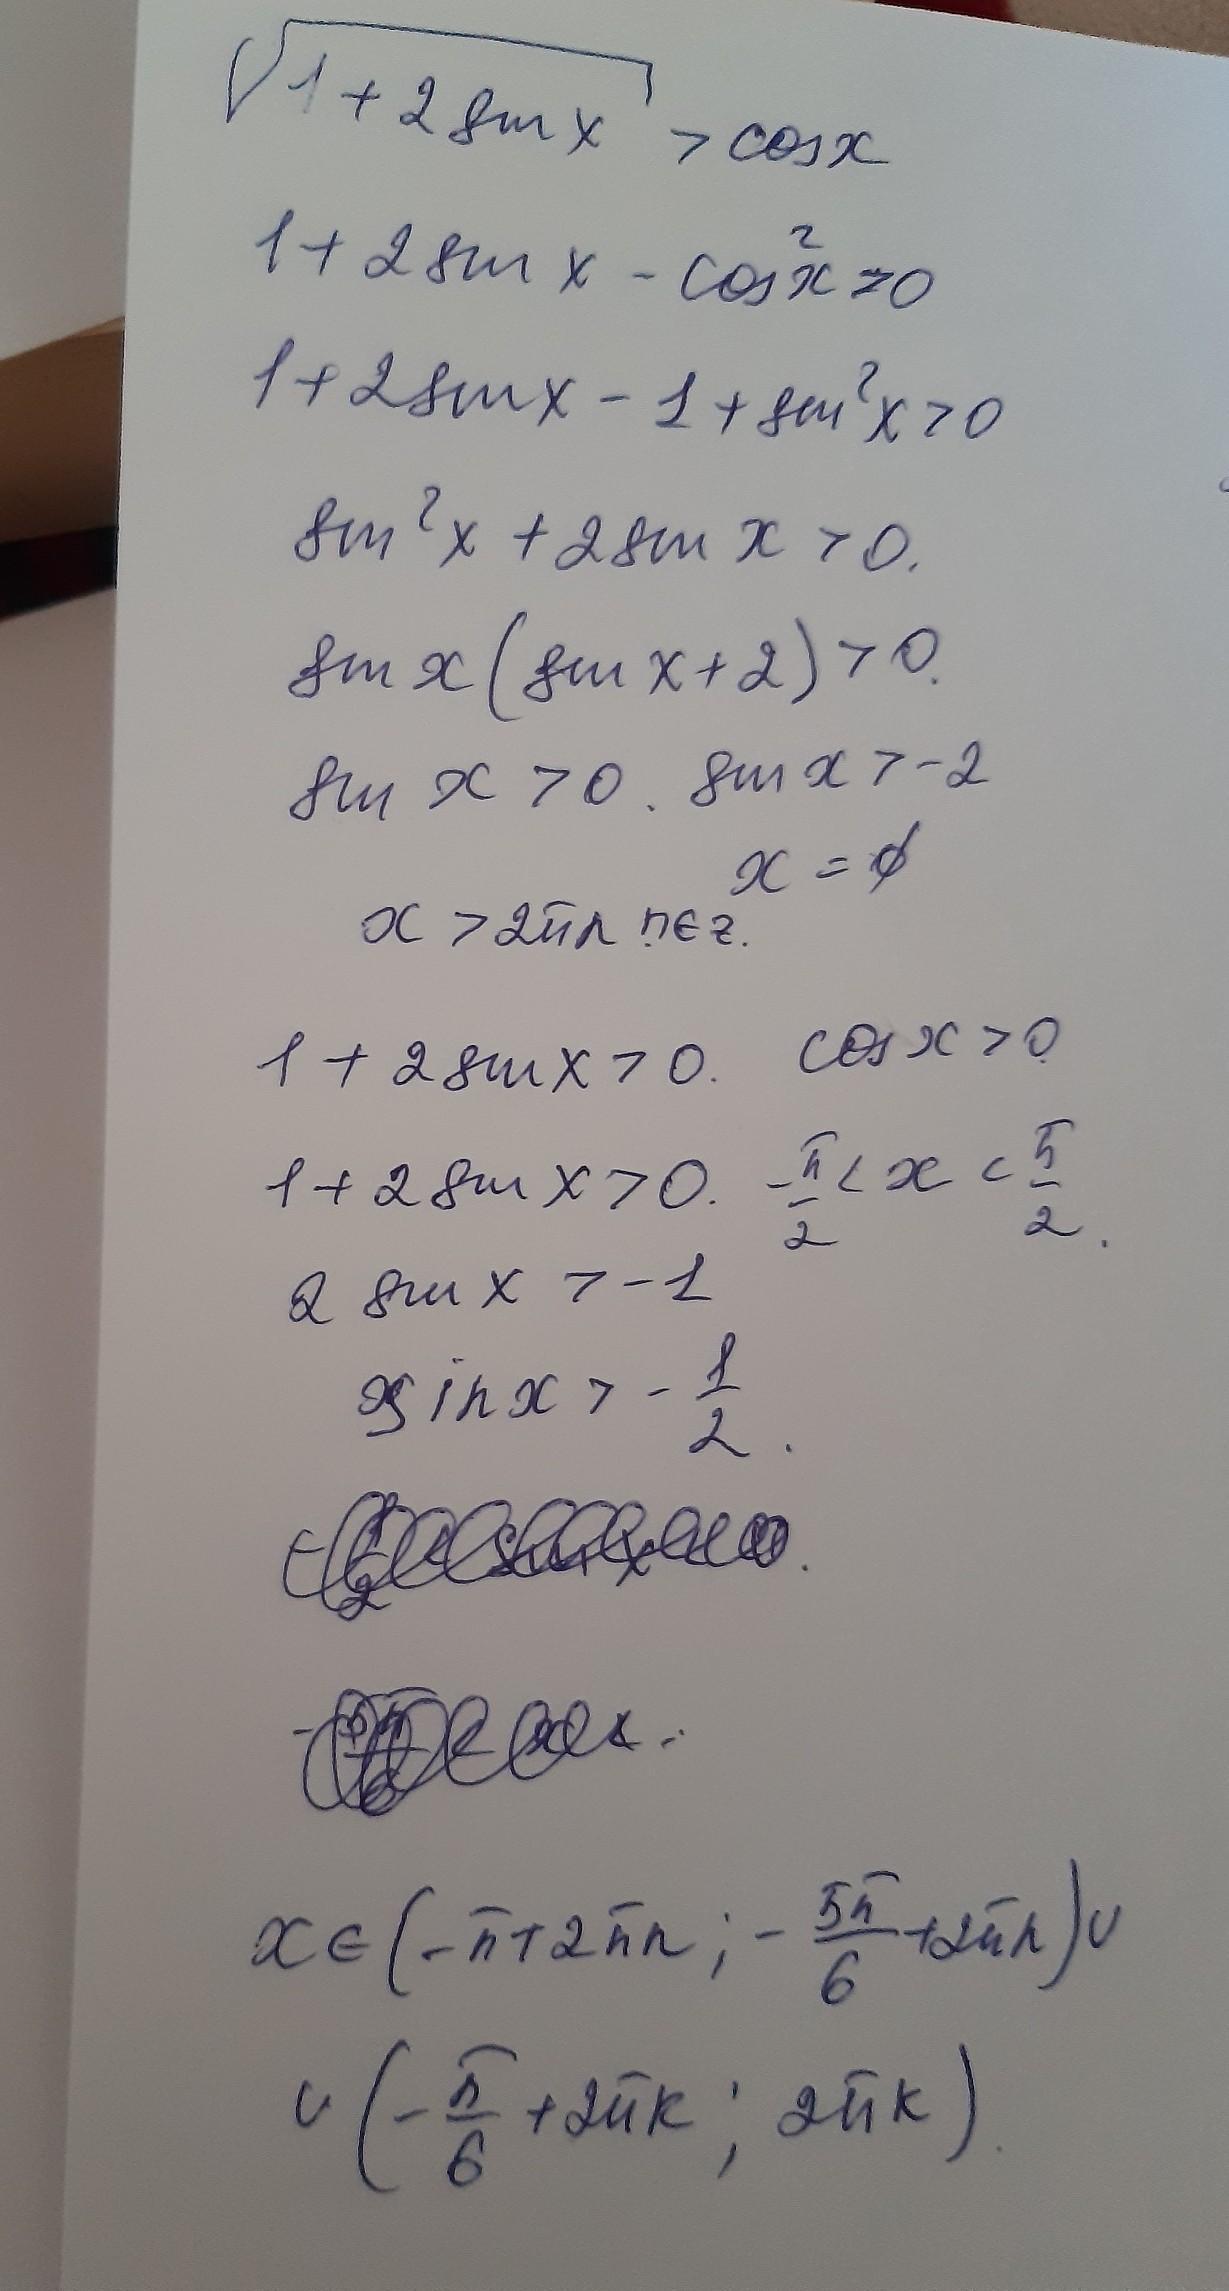 √(1+2sinx) > cosx
1+2sinx - cos²x>0
1+2sinx - 1+sin²x>0
sin²x+2sinx>0.
sinx(sinx+2)>0.
sinx>0. sinx>-2
x=∅
x>2πn n∈z.
1+2sinx>0. cosx>0
1+2sinx>0. -π/2<x<π/2.
2sinx>-1
sinx>-1/2.
x∈(-π+2πn;-5π/6+2πn)∪
∪(-π/6+2πk; 2πk).